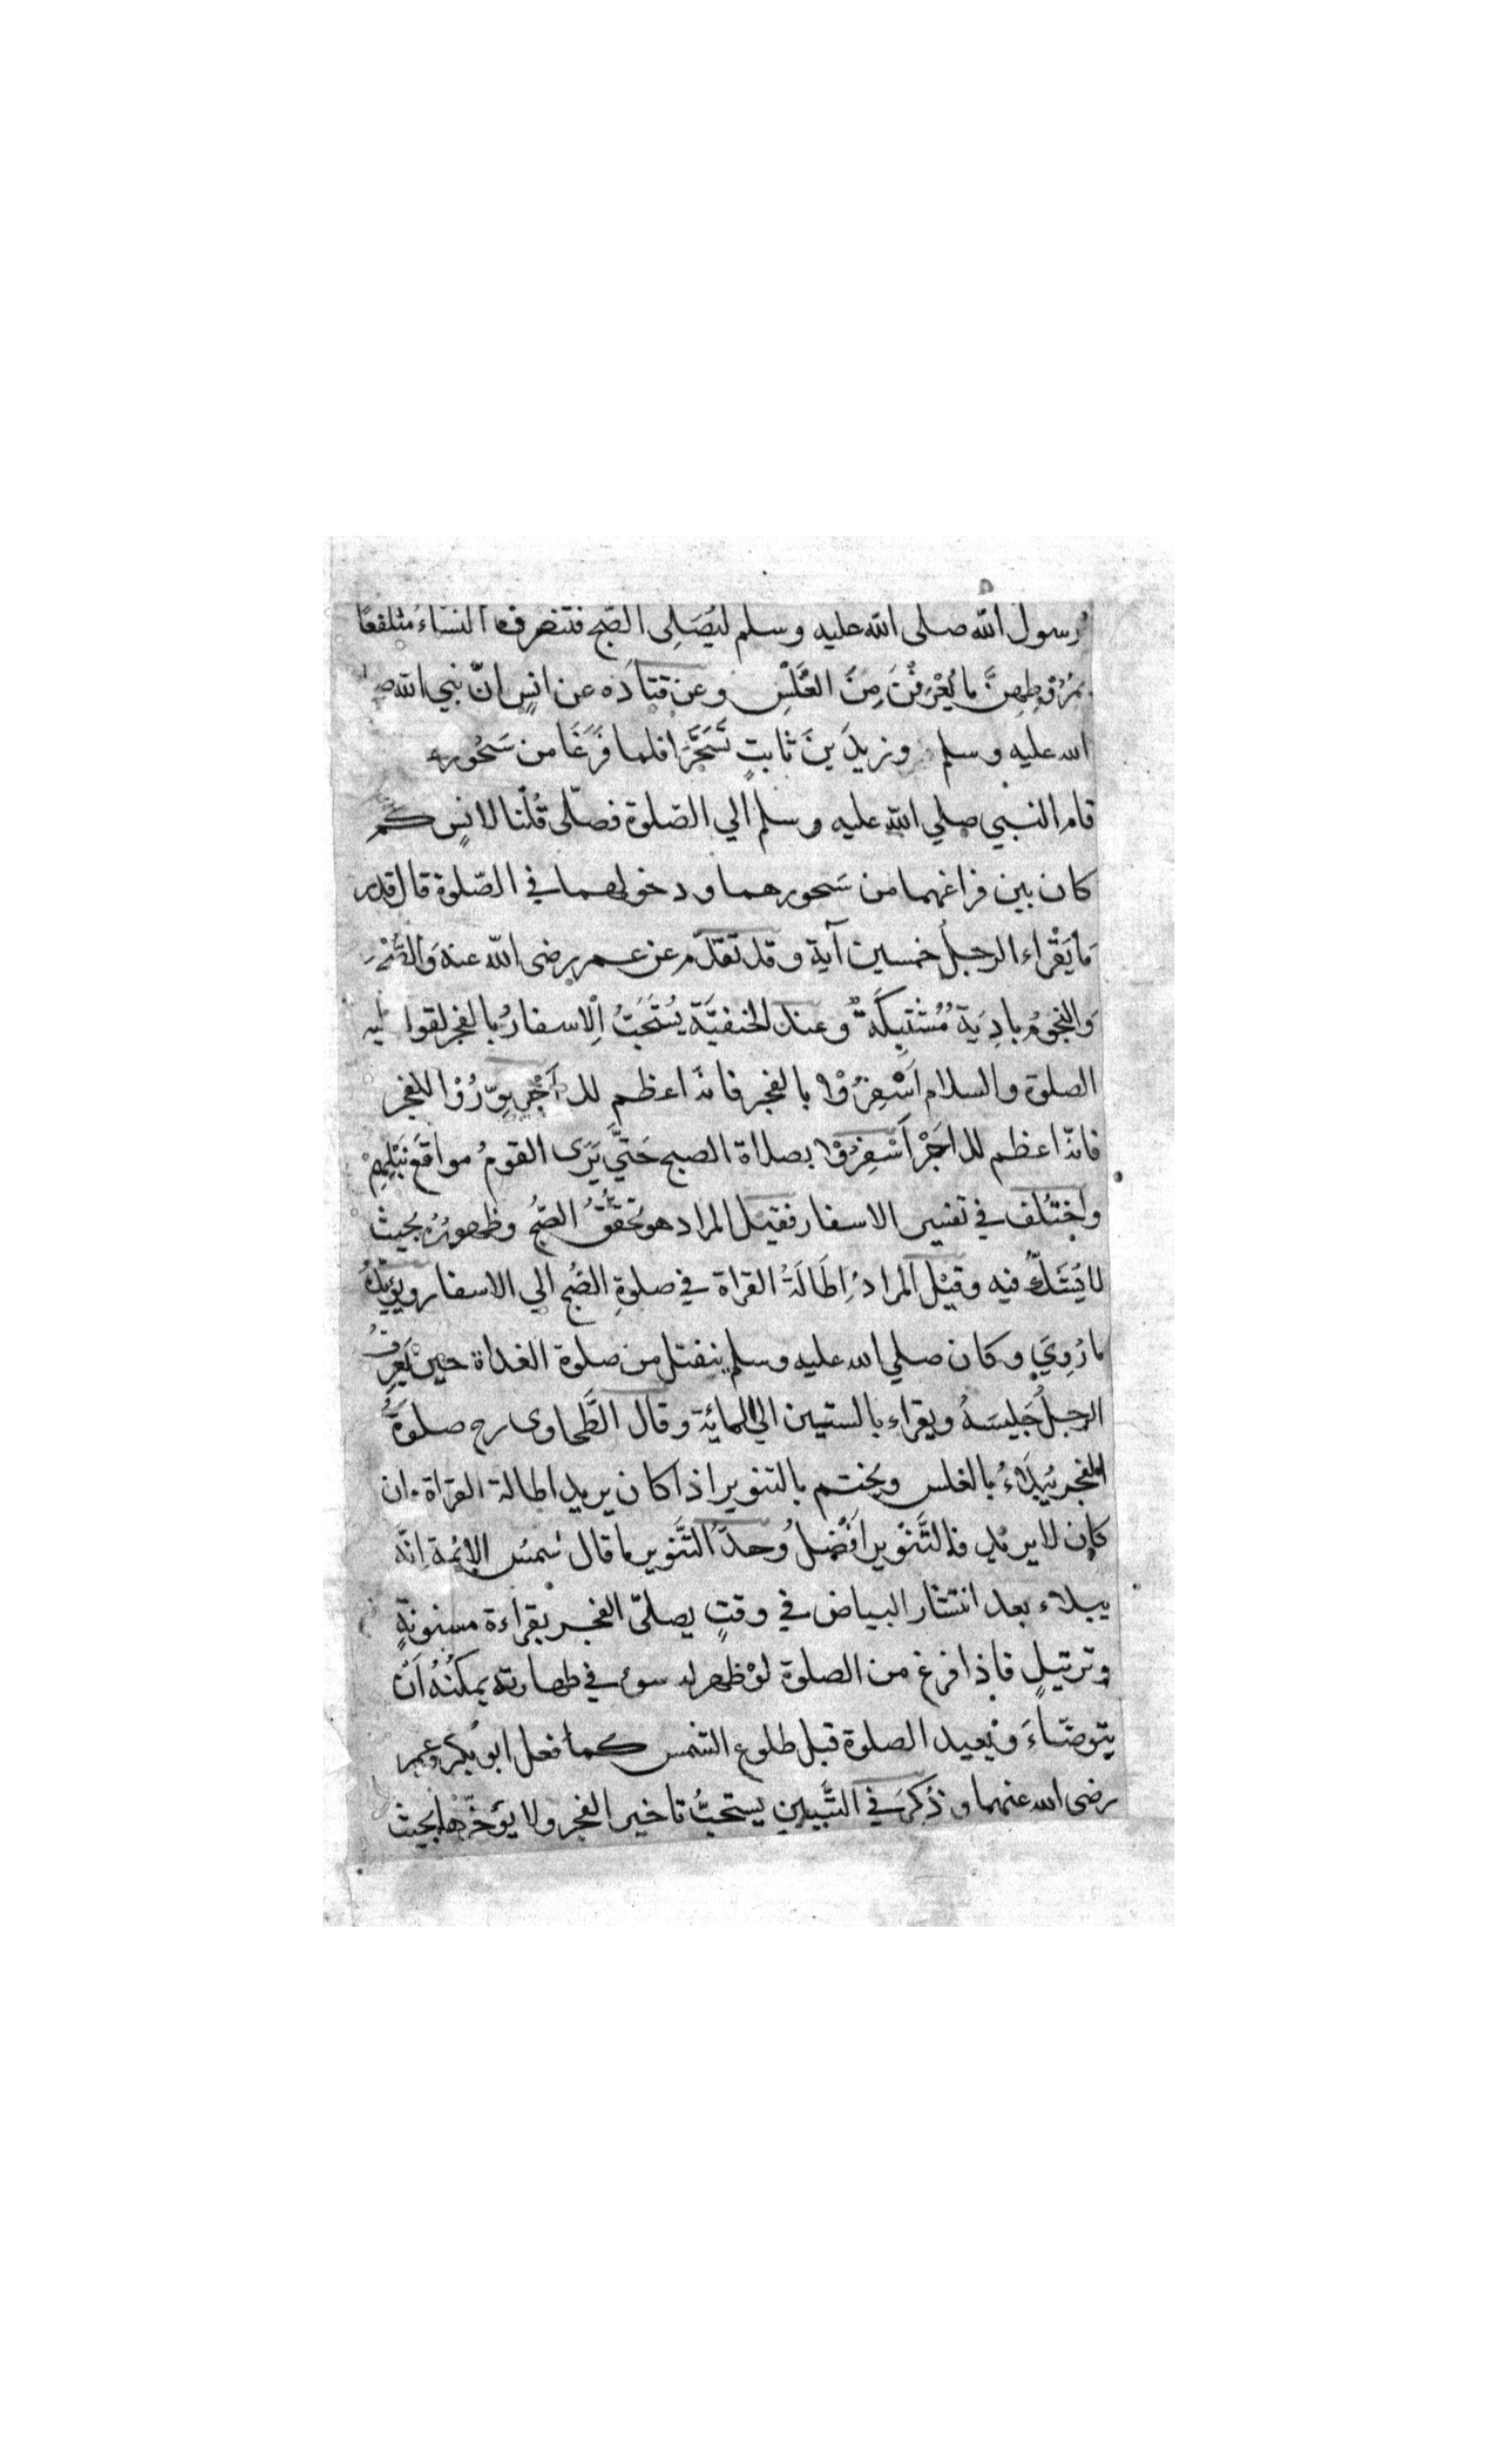 رسول الله صلى الله عليه وسلم ليُصَلِى الصّبح فتنصرف النساء متلفعات
بمُرُوطِهِنَّ ما يُعْرَفْنَ مِنَ الغَلَسِ وعن قتادَه عن انسٍ انّ نبي الله صـ
الله عليه وسلم وزيدَ بنَ ثابتٍ تَسَحَّرَا فلما فَرَغَا من سَحُورهـ
قام النبي صلي الله عليه وسلم الي الصّلوة فصلّى قُلْنا لانسٍ كم
كان بين فراغهما من سَحورهما ودخولهما في الصّلوة قال قدر
مَا يَقْراء الرجلُ خمسين آية وقد تقدّم عن عمر رضى الله عنه وَالصُّبْحَ
وَالنجومُ بادِيَة مُشْتَبِكَةٌ وعند الحنفيَّة يُسْتَحَبُّ الِاسفارُ بالفجر لقوله عليه
الصلوة والسلام اَسْفِرُوْا بالفجر فانه اعظم للاَجْرِ نوِّرُوْا بالفجر
فانّه اعظم للاَجْرِ اَسْفِرُوْا بصلاة الصبح حَتَّي يَرَى القومُ مواقعَ نَبْلِهِمْ
واختُلف في تفسير الاسفار فقيل المراد هو تحَقُّقُ الصّبحُ وظهورُهُ بحيث
لا يُشَكُّ فيه وقيْل المرادُ اِطَالَةُ القراة في صلوةِ الصُبح الي الاسفار ويؤيّدُهُ
ما رُوِيَ وكان صلي الله عليه وسلم ينفتل من صلوة الغداة حين يَعرِفُ
الرجلُ جَليسَهُ ويقراء بالستين الي المائة وقال الطَّحاوى رح صلوةُ
الفجر يُبدَاءُ بالغلس ويختم بالتنوير اذا كان يريد اطالة القراة وان
كان لا يريد فالتَّنوير اَفْضلُ وحدّ التَّنوير ما قال شمسُ الائمة اِنَّهُ
يبداء بعد انتشار البياض في وقتٍ يصلىّ الفجر بقراءة مسنونةٍ
وترتيلٍ فاذا فرغ من الصلوة لوْ ظهر له سوء في طهارته يمكنُهُ اَنْ
يتوضّاءَ ويُعيد الصلوة قبل طلوع الشمس كما فعل ابو بكر وعمر
رضى الله عنهما وذُكرَ في التَّبيين يستحبُّ تاخير الفجر ولا يؤخّرها بحيث